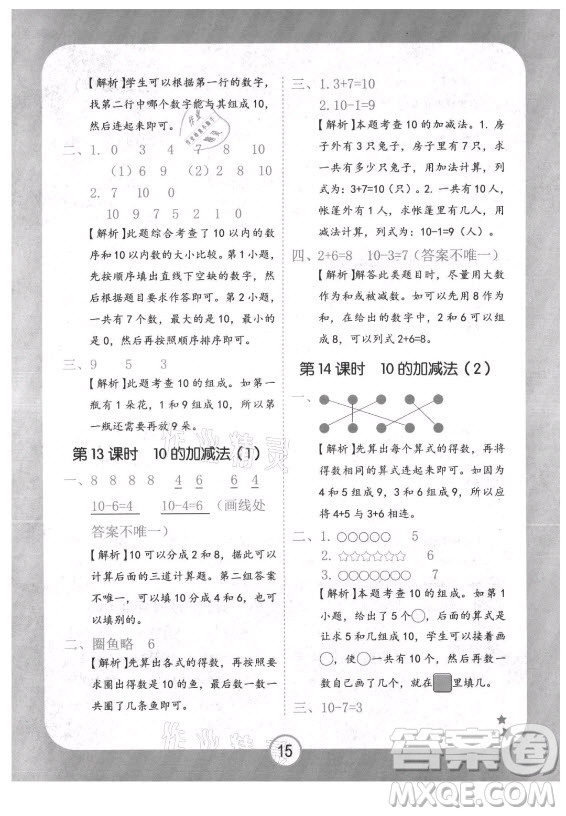 【解析】学生可以根据第一行的数字，
找第二行中哪个数字能与其组成 10，
然后连起来即可。
二、1. 0 3 4 7 8 10
(1) 6 9 (2) 8 8
2. 7 10
10 9 7 5 2 1 0
【解析】此题综合考查了 10 以内的数
序和 10 以内数的大小比较。第 1 小题，
先按顺序填出直线下空缺的数字，然后
根据题目要求作答即可。第 2 小题，
一共有 7 个数，最大的是 10，最小的
是 0，然后按照顺序排序即可。
三、9 5 3
【解析】此题考查 10 的组成。如第一
瓶有 1 朵花，1 和 9 组成 10，所以第
一瓶还需要再放 9 朵。
第 13 课时 10 的加减法（1）
一、8 8 8 8 4 6 6 4
10-6=4 10-4=6（画线处
答案不唯一）
【解析】10 可以分成 2 和 8，由此可以
计算后面的三道计算题。第二组答案
不唯一，可以分成 4 和 6，也可以
填别的。
二、圈鱼略 6
【解析】先算出各式的得数，再根据要
求圈出得数是 10 的鱼，最后数一共
圈了几条鱼即可。
三、1. 3+7=10
2. 10-1=9
【解析】本题考查 10 的加减法。1. 房
子外有 3 只兔子，房子里有 7 只，求
一共有多少只兔子，用加法计算，列
式为：3+7=10（只）。2. 一共有 10 人，
帐篷里有 1 人，求帐篷外有多少人，用
减法计算，列式为：10-1=9（人）。
四、2+6=8 10-3=7（答案不唯一）
【解析】解答此类题目时，尽量用大数
作为和或被减数。如可以先用 8 作为
和，在给出的数字中，2 和 6 能组成
8，可以列式 2+6=8。
第 14 课时 10 的加减法（2）
一、
【解析】先算出每个算式的得数，再将
得数相同的算式连起来即可。如第一
行 4 和 5 组成 9，3 和 6 组成 9，所以
将 4+5 与 3+6 相连。
二、1. ○○○○○ 5
2. ☆☆☆☆☆☆ 6
【解析】本题考查 10 的组成。如第 1
小题，给出了 5 个○，后面的算式是
让求 5 和几组成 10，学生可以接着画
一画○，使○一共有 10 个，然后再数
数自己画了几个，就在■里填几。
三、10-7=3
15
作业精灵
答案圈
MXQE.COM